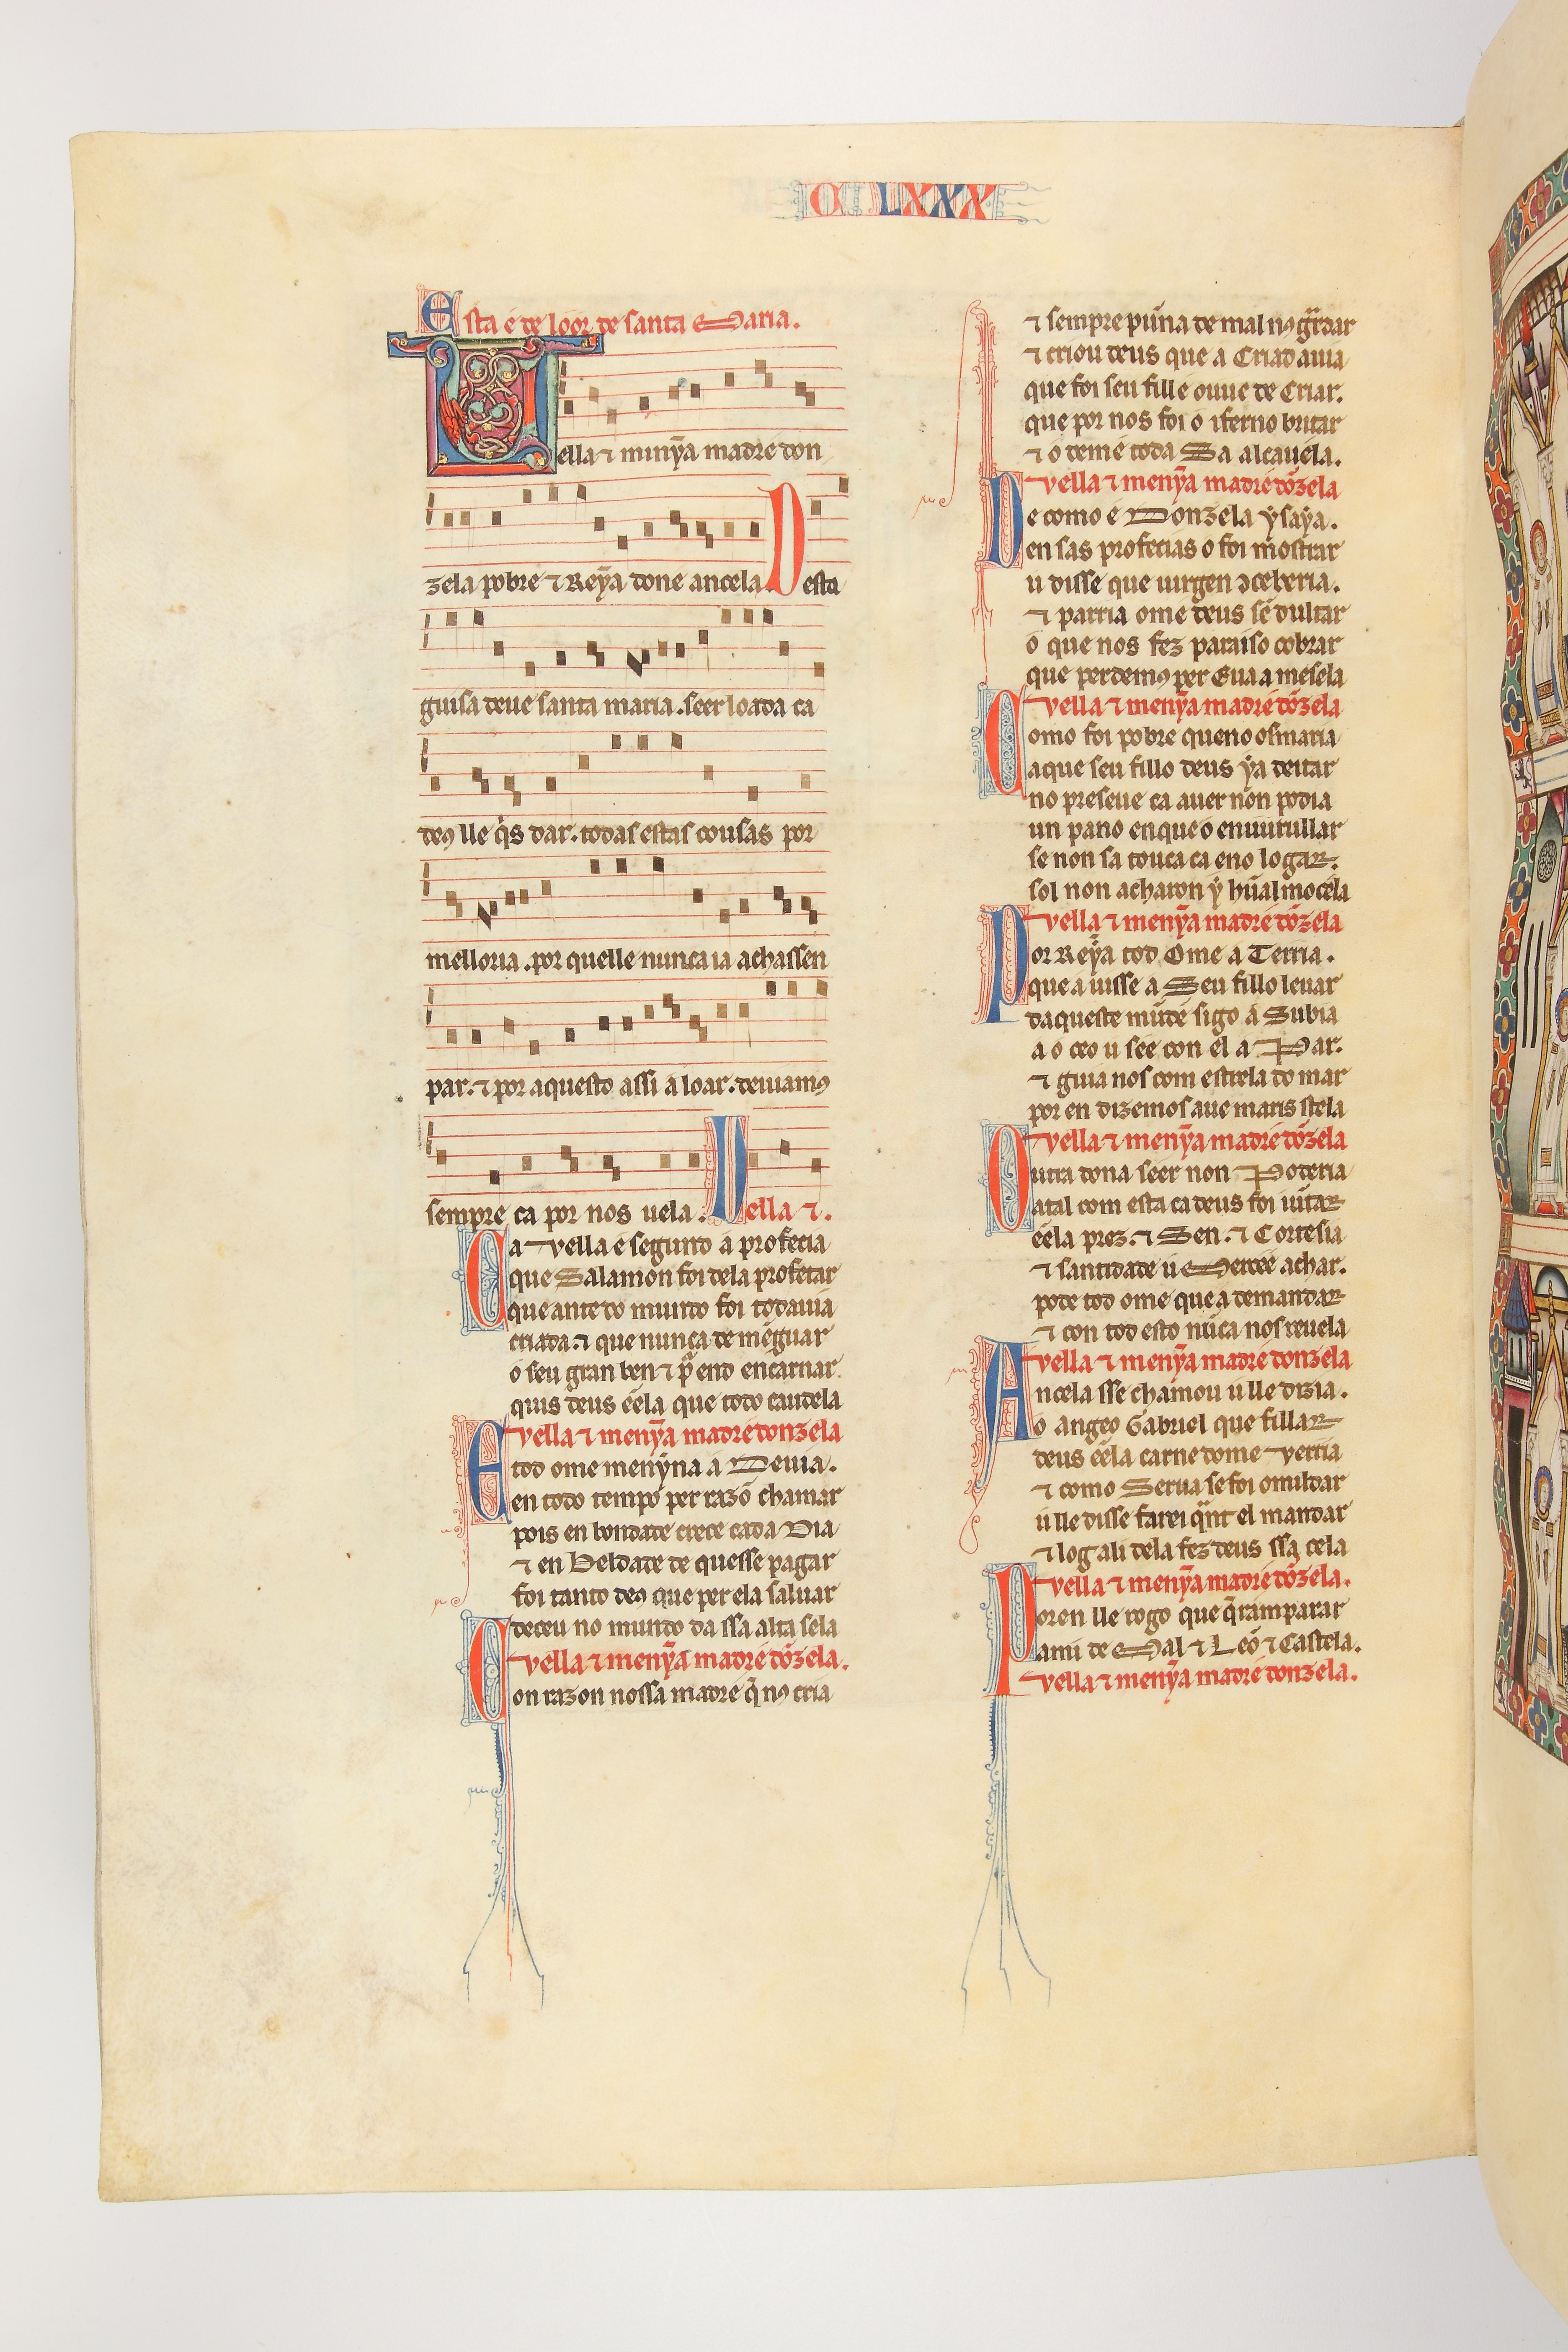 C LXXX
Esta é de loor de santa Maria.
Uella ⁊ minỹa madre don
zela pobre ⁊ Reỹa done ancela Desta
guisa deue santa maria . seer loada ca
deꝰ lle q̇s dar . todas estas cousas por
melloria . por quelle nunca ia achassen
par . ⁊ por aquesto assi a loar . deuiamꝰ
sempre ca por nos uela . Vella ⁊ .
Ca vella é segund a profecia
que Salamon foi dela profetar
que ante do mundo foi todauia
criada . ⁊ que nunca de mẽguar
o seu gran ben ⁊ p̃ end encarnar
quis deus ééla que todo caudela
Vella ⁊ menỹa madre donzela
E tod ome menỹna a Deuia .
en todo tempo per razõ chamar
pois en bondade crece cada Dia
⁊ en Beldade de quesse pagar
foi tanto deꝰ que per ela saluar
deceu no mundo da ssa alta sela
Vella ⁊ menỹa madre dõzela .
Con razon nossa madre q̃ nꝰ cria
⁊ sempre puña de mal nꝰ g̃rdar
⁊ criou deus que a Criad auia
que foi seu fill e ouue de Criar .
que por nos foi o iferno britar
⁊ o deme toda Sa alcauela .
Vella ⁊ menỹa madre dõzela
De como é Donzela ẏsaẏa .
en sas profecias o foi mostrar
u disse que uirgen ɔceberia .
⁊ parria ome deus sẽ dultar
o que nos fez paraiso cobrar
que perdemꝰ per Eua a mesela
Vella ⁊ menỹa madre dõzela
Como foi pobre queno osmaria
aque seu fillo deus ẏa deitar
no preseue ca auer non podia
un pano enque o enuurullar
se non sa touca ca eno logar .
sol non acharon ẏ hũa almocela
Vella ⁊ menỹa madre dõzela
Por Reỹa tod Ome a Terria .
que a uisse a Seu fillo leuar
daqueste mũde sigo a Subia
a o ceo u see con el a Par .
⁊ guia nos com estrela do mar
por en dizemos aue maris stela
Vella ⁊ menỹa madre dõzela
Outra dona seer non Poderia
atal com esta ca deus foi iũtar
ééla prez . ⁊ Sen . ⁊ Cortesia
⁊ santidade u Mercéé achar .
pode tod ome que a demandar
⁊ con tod esto nũca nos reuela
Vella ⁊ menỹa madre donzela
Ancela sse chamou u lle dizia .
o angeo Gabriel que fillar
deus ééla carne dome verria
⁊ como Serua se foi omildar
u lle disse farei q̃nt el mandar
⁊ log ali dela fez deus ssa cela
Vella ⁊ menỹa madre dõzela .
Poren lle rogo que q̃r amparar
ami de Mal ⁊ Leõ ⁊ Castela .
Vella ⁊ menỹa madre donzela .